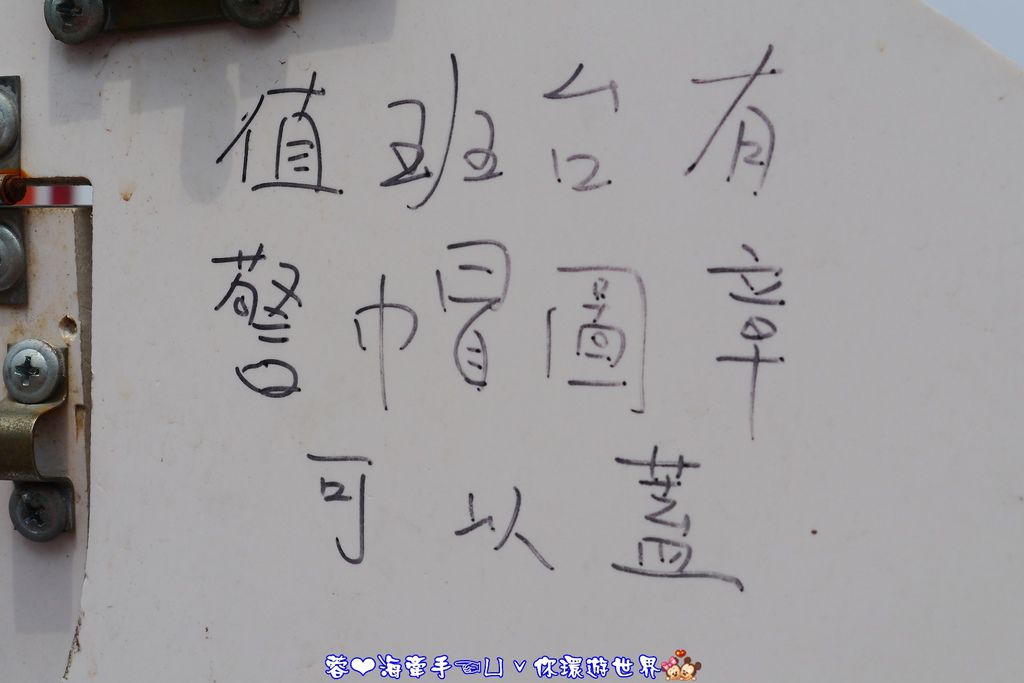 值班台有
警帽圖章
可以蓋
蓉❤海牽手☜凵ˇ你環遊世界